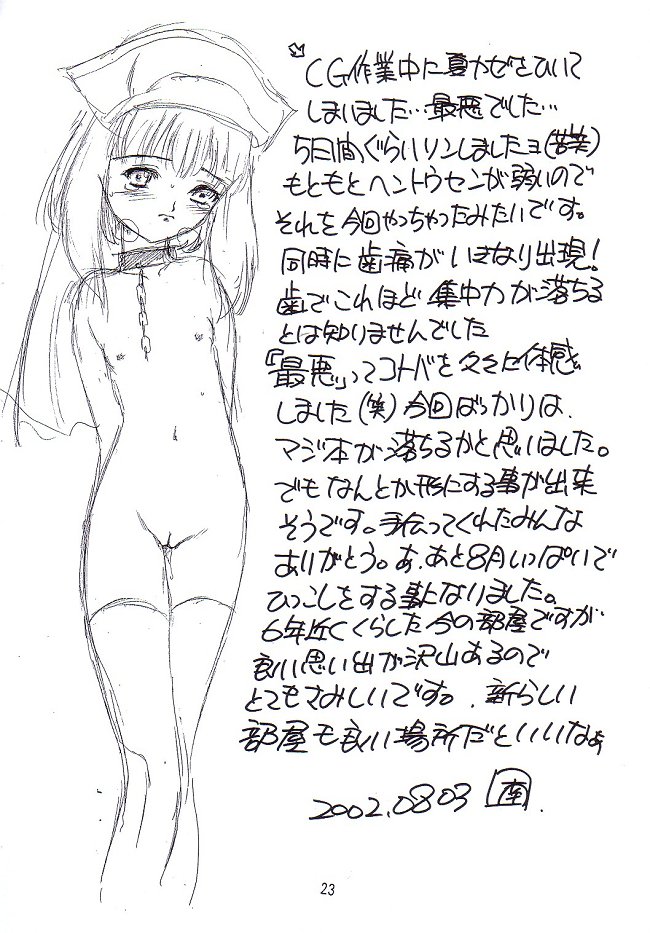 CG作業中に夏カゼをひいて
しまいました…最悪でした…
5日間ぐらいリンしましたヨ(苦笑)
もともとヘントウセンが弱いので
それを今回やっちゃったみたいです。
同時に歯痛がいきなり出現!
歯でこれほど集中力が落ちる
とは知りませんでした
『最悪』ってコトバを タタセ体感
しました(笑)今回ばっかりは、
マジ本が落ちるかと思いました。
でもなんとか形にする事が出来
そうです。手伝ってくれたみんな
ありがとう。あ、あと8月いっぱいで
ひっこしをする事となりました。
6年近くくらした今の部屋ですが
良い思い出が沢山あるので
とてもさみしいです。新らしい
部屋も良い場所だといいなぁ
2002.08.03
23